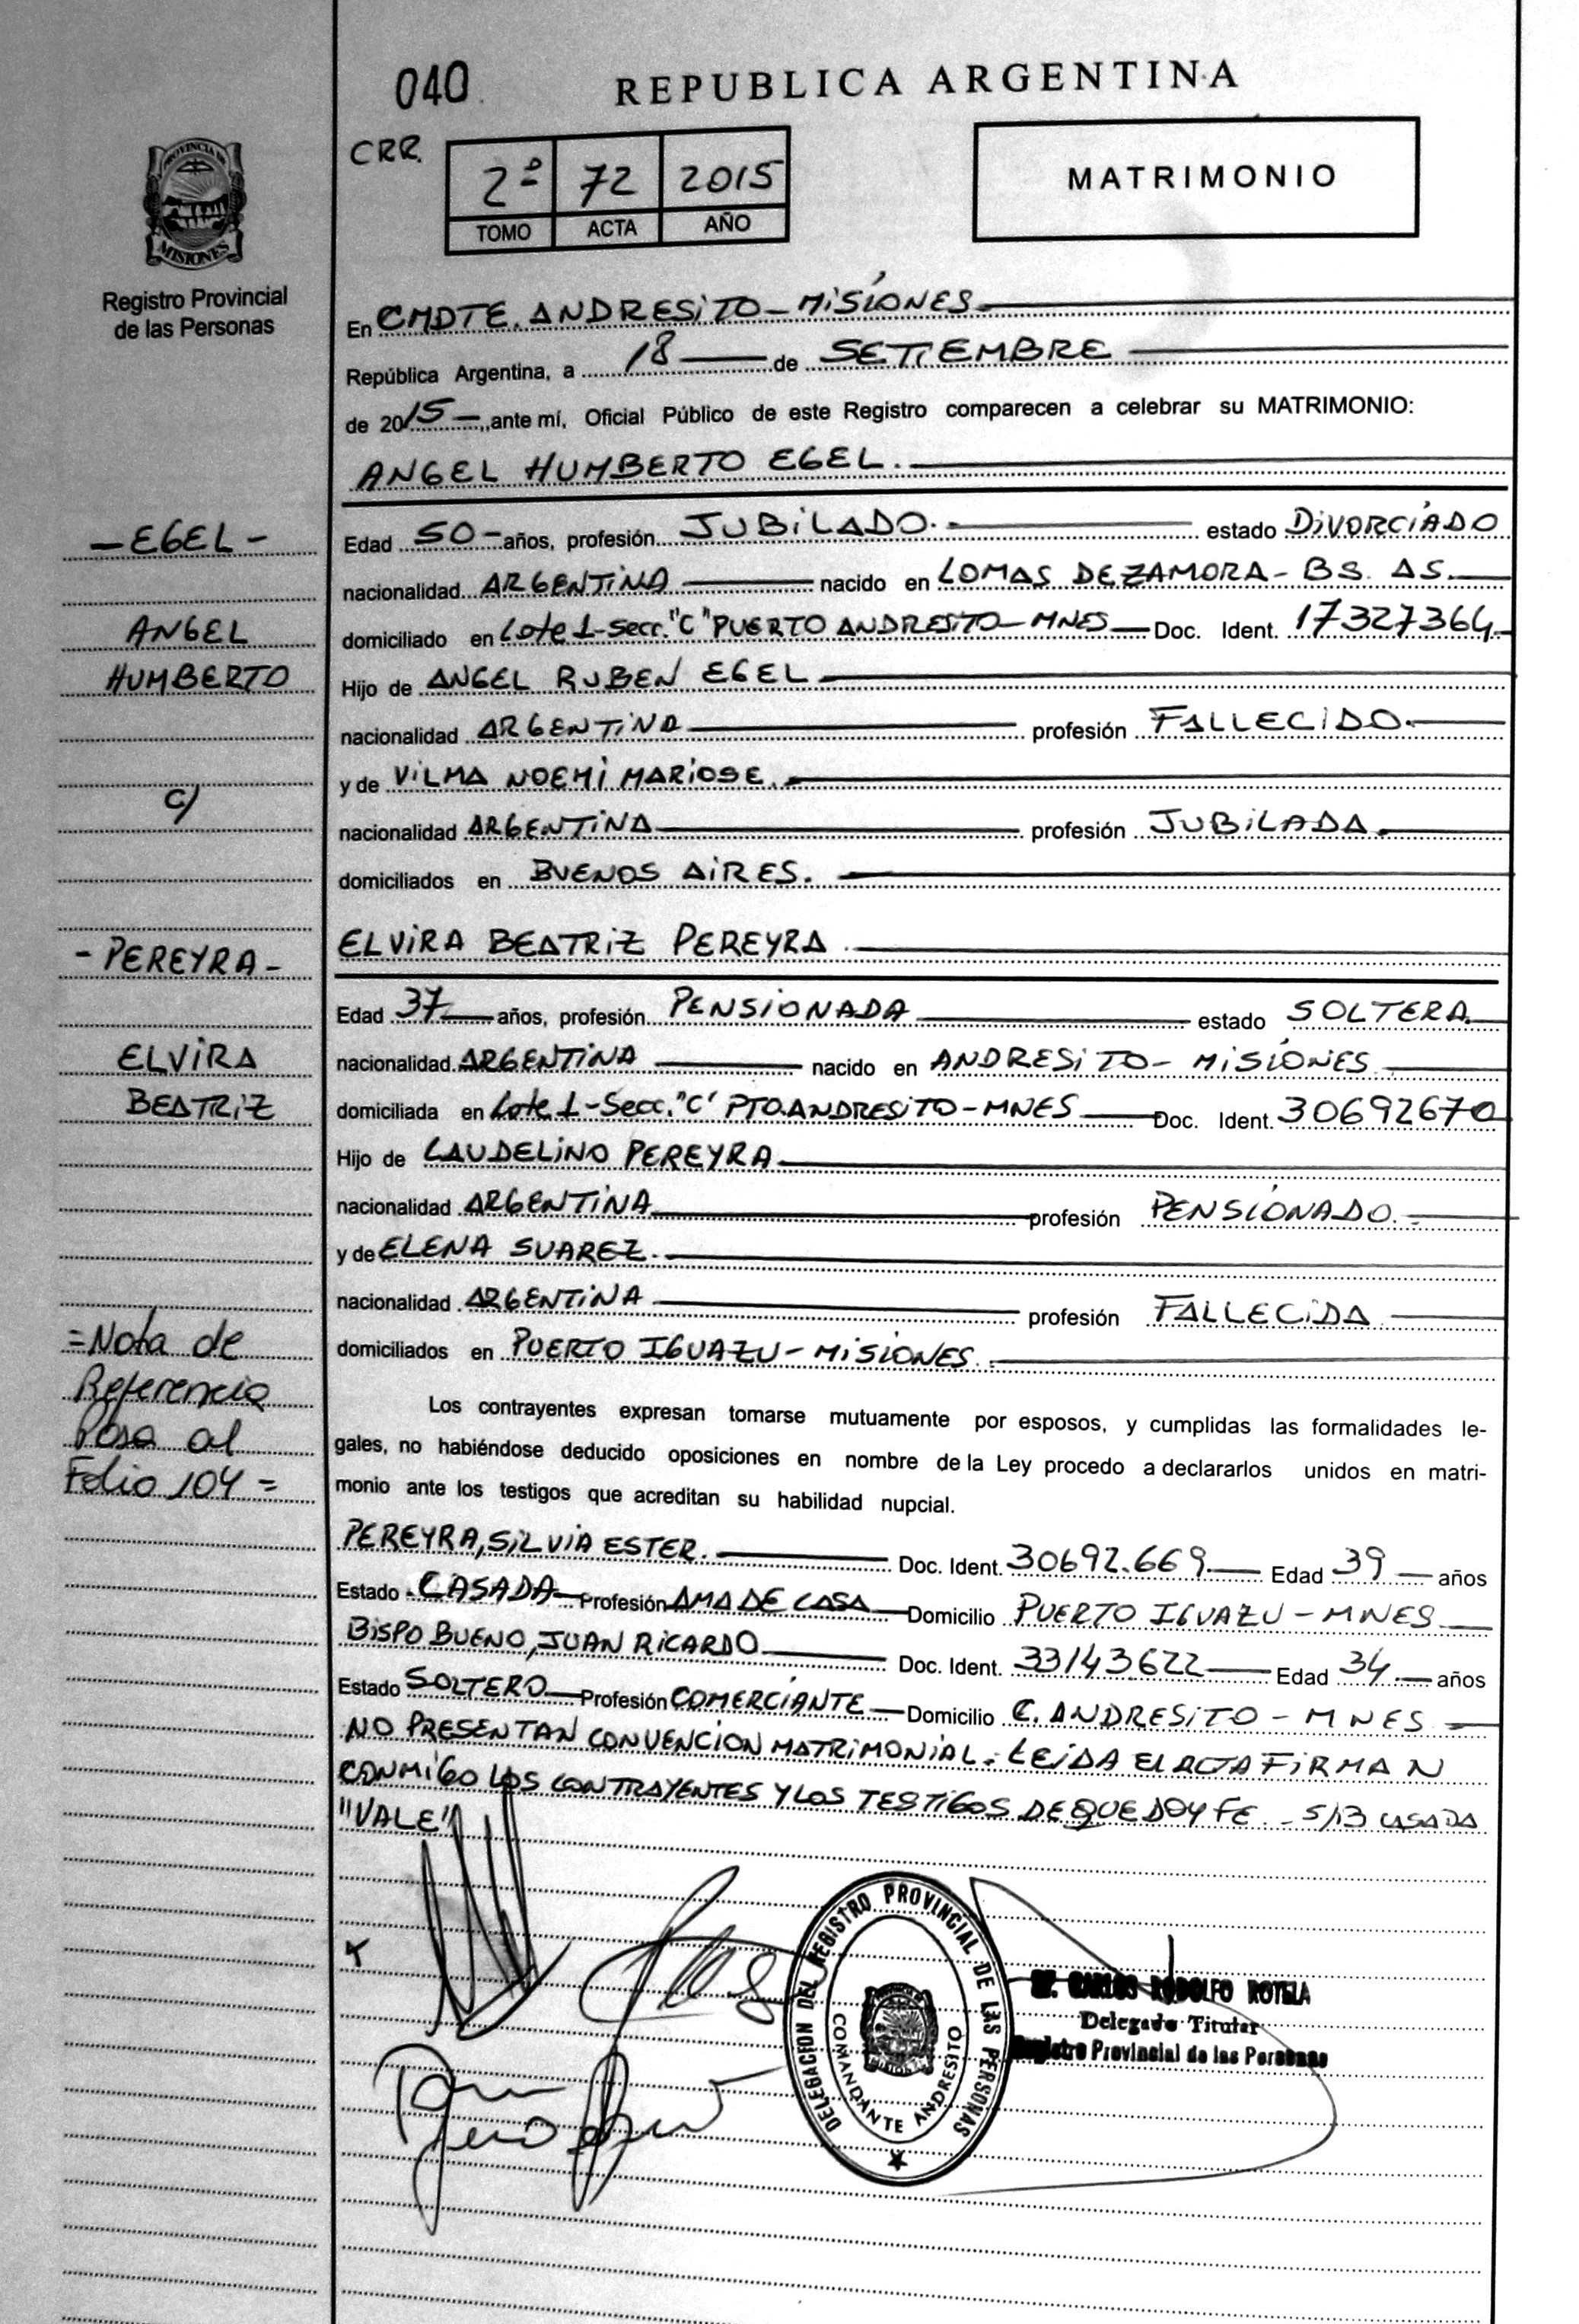 040 REPUBLICA ARGENTINA
CRR.
2º 72 2015
TOMO ACTA AÑO
MATRIMONIO
PROVINCIA DE
MISIONES
Registro Provincial
de las Personas
En CMDTE. ANDRESITO - MISIONES
República Argentina, a 18 de SETIEMBRE
de 2015, ante mí, Oficial Público de este Registro comparecen a celebrar su MATRIMONIO:
ANGEL HUMBERTO EGEL.
- EGEL -
ANGEL
HUMBERTO
c/
- PEREYRA -
ELVIRA
BEATRIZ
=Nota de
Referencia
Pasa al
Folio 104 =
Edad 50 - años, profesión JUBILADO. estado DIVORCIADO
nacionalidad ARGENTINA nacido en LOMAS DE ZAMORA - BS. AS.
domiciliado en Lote 1-Secc. "C" PUERTO ANDRESITO - MNES Doc. Ident. 17327364
Hijo de ANGEL RUBEN EGEL
nacionalidad ARGENTINA profesión FALLECIDO.
y de VILMA NOEMI MARIOSE.
nacionalidad ARGENTINA profesión JUBILADA.
domiciliados en BUENOS AIRES.
ELVIRA BEATRIZ PEREYRA
Edad 37 años, profesión PENSIONADA estado SOLTERA
nacionalidad ARGENTINA nacido en ANDRESITO - MISIONES
domiciliada en Lote 1-Secc. "C" PTO.ANDRESITO - MNES Doc. Ident. 30692670
Hijo de LAUDELINO PEREYRA
nacionalidad ARGENTINA profesión PENSIONADO.
y de ELENA SUAREZ.
nacionalidad ARGENTINA profesión FALLECIDA
domiciliados en PUERTO IGUAZU - MISIONES.
Los contrayentes expresan tomarse mutuamente por esposos, y cumplidas las formalidades le-
gales, no habiéndose deducido oposiciones en nombre de la Ley procedo a declararlos unidos en matri-
monio ante los testigos que acreditan su habilidad nupcial.
PEREYRA, SILVIA ESTER. Doc. Ident. 30692.669 Edad 39 años
Estado CASADA Profesión AMA DE CASA Domicilio PUERTO IGUAZU - MNES
BISPO BUENO, JUAN RICARDO Doc. Ident. 33143622 Edad 34 años
Estado SOLTERO Profesión COMERCIANTE Domicilio C. ANDRESITO - MNES
NO PRESENTAN CONVENCION MATRIMONIAL. LEIDA EL ACTA FIRMAN
CONMIGO LOS CONTRAYENTES Y LOS TESTIGOS DE QUE DOY FE - S/13 CASADA
"VALE"
DELEGACION DEL REGISTRO PROVINCIAL DE LAS PERSONAS
COMANDANTE ANDRESITO
CARLOS RODOLFO ROTELA
Delegado Titular
Registro Provincial de las Personas